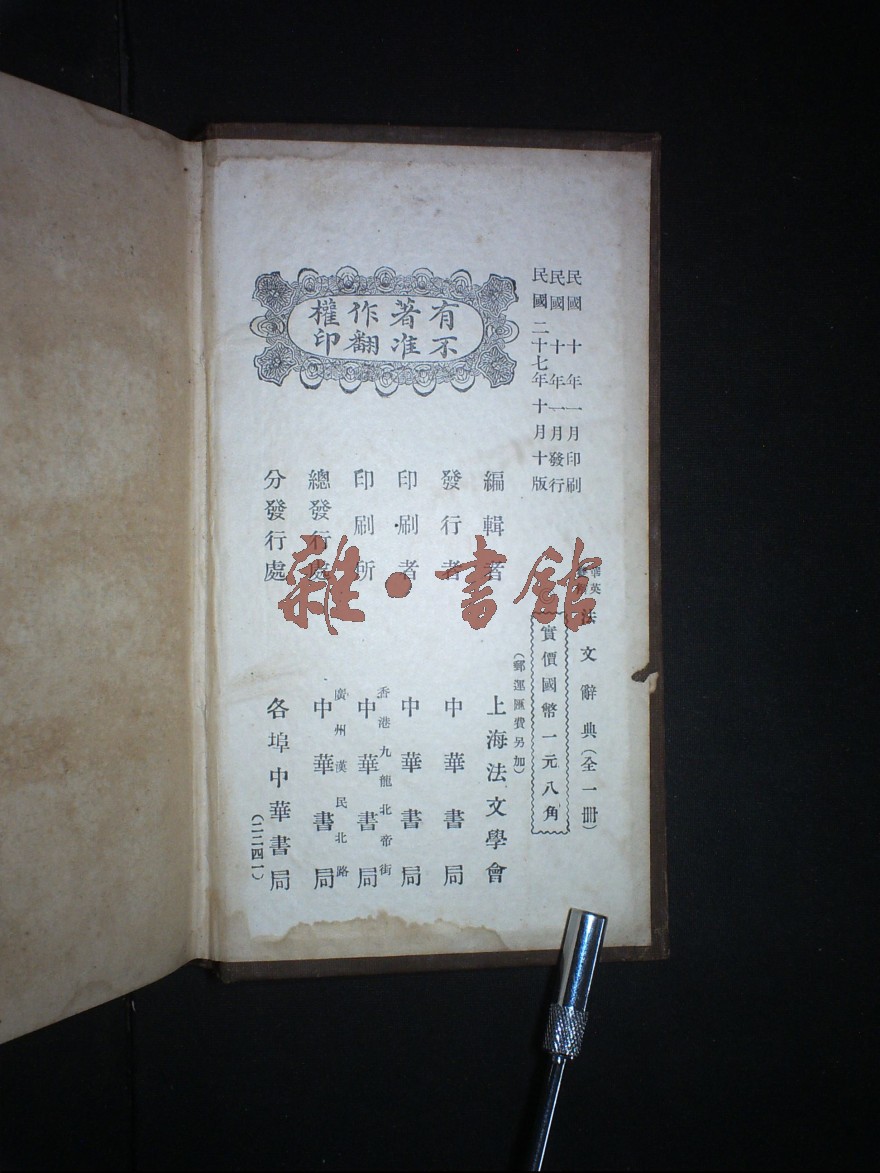 民國十年一月印刷
民國十年一月發行
民國二十七年十月十版
有著作權
不准翻印
華英
法文辭典(全一冊)
實價國幣一元八角
(郵運匯費另加)
編輯者 上海法文學會
發行者 中華書局
印刷者 中華書局
香港九龍北帝街
印刷所 中華書局
廣州漢民北路
總發行處 中華書局
分發行處 各埠中華書局
(二二四一)
雜·書館